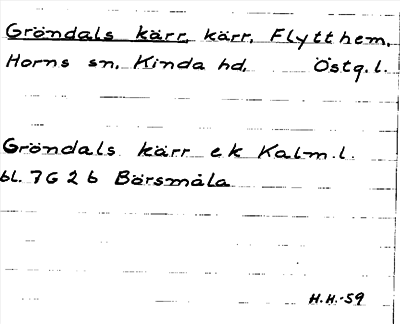 Gröndals kärr, kärr, Flytthem,
Horns sn, Kinda hd, Östg.l.
Gröndals kärr ek Kalm.l.
bl. 7G 2b Börsmåla
H.H.-59